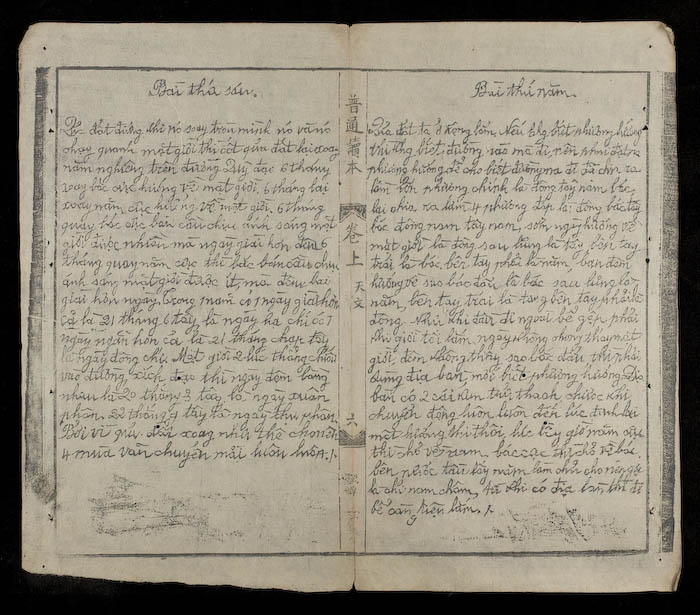 Bài thứ năm.
Quả đất ta ở rộng lớm, Nếu không biết phương hướng
thì không biết đường nào mà đi, nên phải đặt ra
phương hướng để cho biết đường ra đi đã chia ra
làm bốn phương chính là đông tây nam bắc,
lại chia ra làm 4 phương góc là đông bắc tây
bắc đông nam tây nam, sớm ngài hướng về
mặt giời là đông sau lưng là tây bên tay
trái là bắc, bên tay phải là năm, ban đêm
hướng về sao bắc đẩu là bắc sau lưng là
năm, bên tay trái là tay bên tay phải là
đông. Nhũ khi tàu đi ngoài bể gặp phải
khi giời tối tăm, ngay không trông thay mặt
giời, đêm không thấy sao bắc đẩu thì phải
dùng địa bàn mới biết phương hướng. Địa
bàn có 2 cái kim trái thanh chước khi
chuyển động luôn luôn đến lúc định lại
một hướng thì thôi lúc bấy giờ nam cực
thì chỉ về nam bac cực thì chỉ về bắc
bên nước tàu lấy năm làm chủ cho nên gọi
là chỉ nam châm, từ khi có địa bàn thì đi
bể càng tiện lắm.
普通讀本
卷上
天文
六
Bài thứ sáu.
Quả đất đứng thì nó soay tròn mình nó và nó
chạy quanh mặt giời thì cốt quả đất lại xoay
năm nghiêng trên đường quỹ đạo 6 tháng
xoay bắc cực hướng về mặt giời, 6 tháng lại
xoay năm cực hướng về mặt giời. 6 tháng
quay bắc cực bán cầu chịu ánh sáng mặt
giời được nhiều mà ngày giài hơn đêm 6
tháng quay năm cực thì bắc bán cầu chịu
ánh sáng mặt giời được ít, mà đêm lại
giài hơn ngày, trong năm có 1 ngày giài hơn
cả là 21 tháng 6 tây là ngày hạ chí có 1
ngày ngắn hơn cả là 21 tháng chạp tây
là ngày đông chí. Mặt giời 2 lúc thẳng chiếu
vào đường xích đạo thì ngày đêm bằng
nhau là 20 tháng 3 tây là ngày xuân
phân 22 tháng 9 tây là ngày thu phân.
Bởi vì quả đất xoay như thế cho nên
4 mùa vận chuyển mãi luôn luôn.